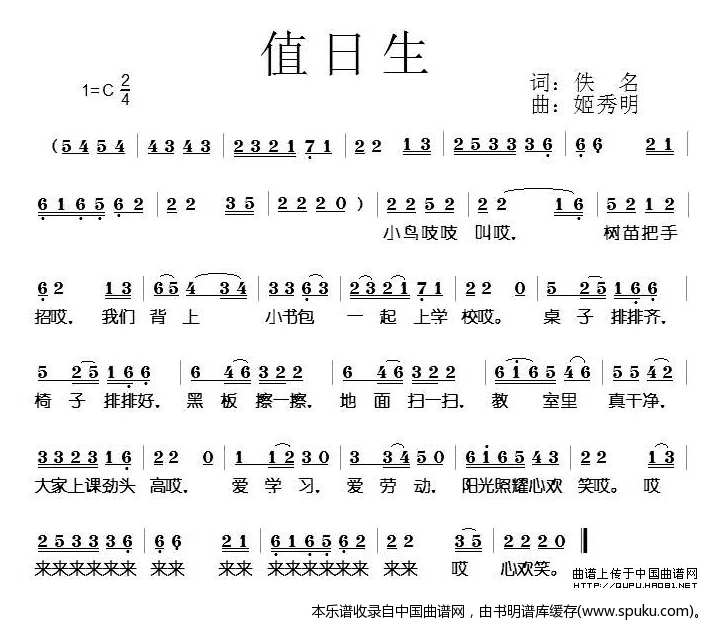 值日生
1=C 2/4
词：佚 名
曲：姬秀明
（5454 | 4343 | 232171 | 22 13 | 2533336 | 66 21 |
6165 62 | 22 35 | 2220 ）| 2252 | 22 16 | 5212
小鸟吱吱 叫哎， 树苗把手
62 13 | 65 4 34 | 3363 | 232171 | 22 0 | 5 25 166 |
招哎， 我们 背上 小书包 一起 上学 校哎。 桌子 排排齐，
5 25 166 | 6 46 322 | 6 46 322 | 6165 42 | 55 42 |
椅子 排排好， 黑板 擦一擦， 地面 扫一扫， 教室里 真干净，
3323 16 | 22 0 | 1 12 30 | 3 34 50 | 6165 43 | 22 13 |
大家上课劲头 高哎， 爱学习， 爱劳动， 阳光照耀心欢 笑哎。 哎
2533336 | 66 21 | 6165 62 | 22 35 | 2220
来来来来来来 来来 来来 来来来来来来 来来 哎 心欢笑。
曲谱上传于中国曲谱网
HTTP://QUPU.HAO81.NET
本乐谱收录自中国曲谱网，由书明谱库缓存(www.spuku.com)。